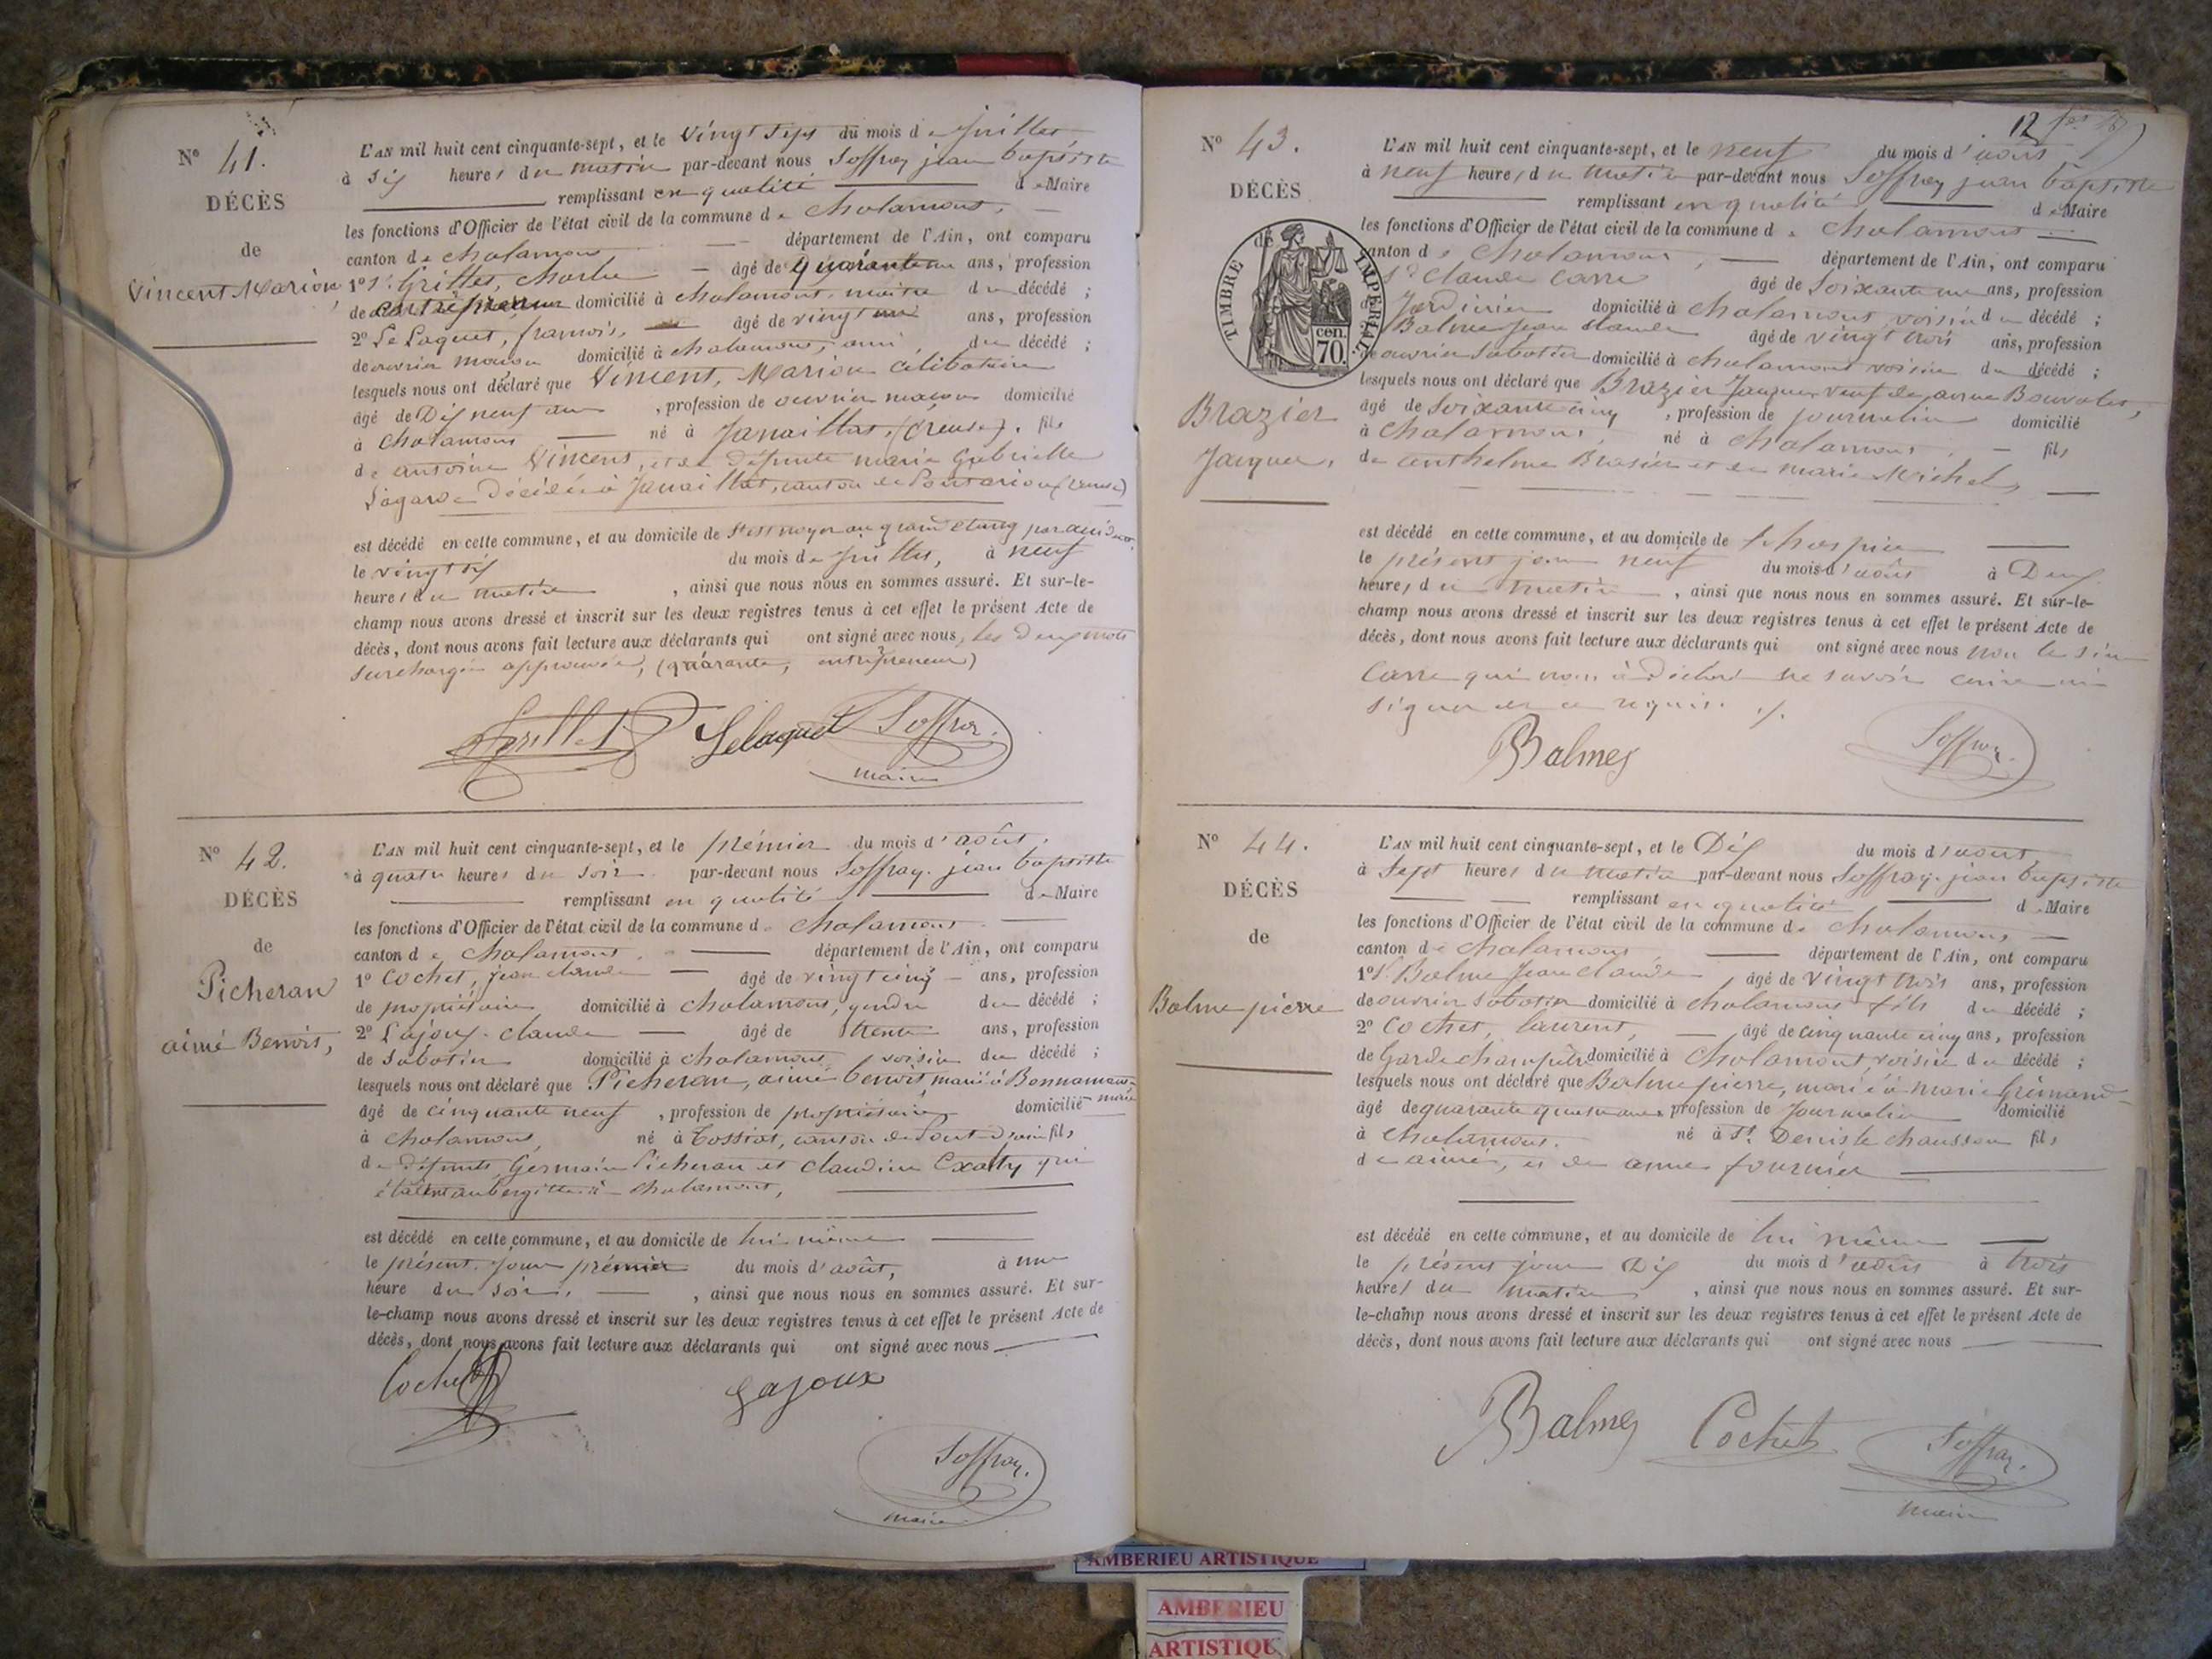 N° 41.
DÉCÈS
de
Vincent Marion
L'AN mil huit cent cinquante-sept, et le vingt sept du mois de juillet
à six heures du matin par-devant nous Soffray jean baptiste
remplissant en qualité de Maire
les fonctions d'Officier de l'état civil de la commune de chalamont,
canton de chalamont département de l'Ain, ont comparu
1° Sr Grillet, charles âgé de quarante ans, profession
de entrepreneur domicilié à chalamont, maitre du décédé ;
2° Le Laquet, françois, âgé de vingt ans, profession
de ouvrier maçon domicilié à chalamont, ami du décédé ;
lesquels nous ont déclaré que Vincent, Marion célibataire
âgé de Dix neuf ans, profession de ouvrier maçon domicilié
à chalamont né à Janaillat, (creuse), fils
de antoine Vincent, et de défunte marie Gabrielle
Lagarde Décédée à Janaillat, canton de Pontarion (creuse)
est décédé en cette commune, et au domicile de s'est noyer au grand etang par accident
le vingt six du mois de juillet, à neuf
heures du matin, ainsi que nous nous en sommes assuré. Et sur-le-
champ nous avons dressé et inscrit sur les deux registres tenus à cet effet le présent Acte de
décès, dont nous avons fait lecture aux déclarants qui ont signé avec nous, les deux mots
surchargés approuvés, (quarante, entrepreneur)
Grillet Lelaquet Soffray
maire
N° 42.
DÉCÈS
de
Picheran
aimé Benoit,
L'AN mil huit cent cinquante-sept, et le prémier du mois d'août,
à quatre heures du soir par-devant nous Soffray jean baptiste
remplissant en qualité de Maire
les fonctions d'Officier de l'état civil de la commune de chalamont
canton de chalamont, département de l'Ain, ont comparu
1° Cochet, jean claude âgé de vingt cinq ans, profession
de propriétaire domicilié à chalamont, gendre du décédé ;
2° Lajoux claude âgé de trente ans, profession
de sabotier domicilié à chalamont, voisin du décédé ;
lesquels nous ont déclaré que Picheran, aimé benoit, marié à Bonnamour
âgé de cinquante neuf, profession de propriétaire domicilié marie
à chalamont, né à Tossiat, canton de Pont d'ain fils
de défunts Germain Picheran et claudine Exarty qui
étaient aubergistes à chalamont,
est décédé en cette commune, et au domicile de lui même
le présent jour prémier du mois d'août, à une
heure du soir, ainsi que nous nous en sommes assuré. Et sur-
le-champ nous avons dressé et inscrit sur les deux registres tenus à cet effet le présent Acte de
décès, dont nous avons fait lecture aux déclarants qui ont signé avec nous
Cochet Lajoux
Soffray
maire
12
N° 43.
DÉCÈS
de
TIMBRE IMPÉRIALE
70. cen.
Brazier
Jacques,
L'AN mil huit cent cinquante-sept, et le neuf du mois d'août
à neuf heures du matin par-devant nous Soffray jean baptiste
remplissant en qualité de Maire
les fonctions d'Officier de l'état civil de la commune de chalamont
canton de chalamont, département de l'Ain, ont comparu
Sr Claude Carre âgé de soixante un ans, profession
Jardinier domicilié à chalamont voisin du décédé ;
Balme Jean claude âgé de vingt trois ans, profession
de ouvrier sabotier domicilié à chalamont voisin du décédé ;
lesquels nous ont déclaré que Brazier Jacques veuf de anne Bouvalet,
âgé de soixante cinq, profession de journalier domicilié
à chalamont, né à chalamont, fils
de anthelme Brasier et de marie Michel,
est décédé en cette commune, et au domicile de l'hospice
le présent jour neuf du mois d'août à Deux
heures du matin, ainsi que nous nous en sommes assuré. Et sur-le-
champ nous avons dressé et inscrit sur les deux registres tenus à cet effet le présent Acte de
décès, dont nous avons fait lecture aux déclarants qui ont signé avec nous non le sieur
Carre qui nous à déclaré ne savoir écrire ni
signer de ce requis ./.
Balmes Soffray
N° 44.
DÉCÈS
de
Balme pierre
L'AN mil huit cent cinquante-sept, et le Dix du mois d'août,
à sept heures du matin par-devant nous Soffray jean baptiste
remplissant en qualité de Maire
les fonctions d'Officier de l'état civil de la commune de chalamont
canton de chalamont département de l'Ain, ont comparu
1° Sr Balme Jean claude âgé de vingt trois ans, profession
de ouvrier sabotier domicilié à chalamont fils du décédé ;
2° Cochet, laurent, âgé de cinquante cinq ans, profession
de Garde champêtre domicilié à chalamont, voisin du décédé ;
lesquels nous ont déclaré que Balme pierre, marié à marie Grimand
âgé de quarante quatre ans profession de Journalier domicilié
à chalamont. né à St Denis le chausson fils
de aimé, et de anne fournier
est décédé en cette commune, et au domicile de lui même
le présent jour Dix du mois d'août à trois
heures du matin, ainsi que nous nous en sommes assuré. Et sur-
le-champ nous avons dressé et inscrit sur les deux registres tenus à cet effet le présent Acte de
décès, dont nous avons fait lecture aux déclarants qui ont signé avec nous
Balmes Cochet Soffray
maire
AMBERIEU ARTISTIQUE
AMBERIEU
ARTISTIQUE